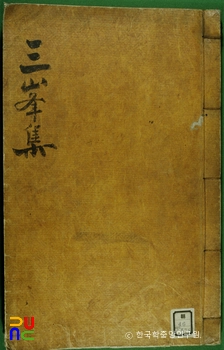 三峯集
ⓒ 한국학중앙연구원